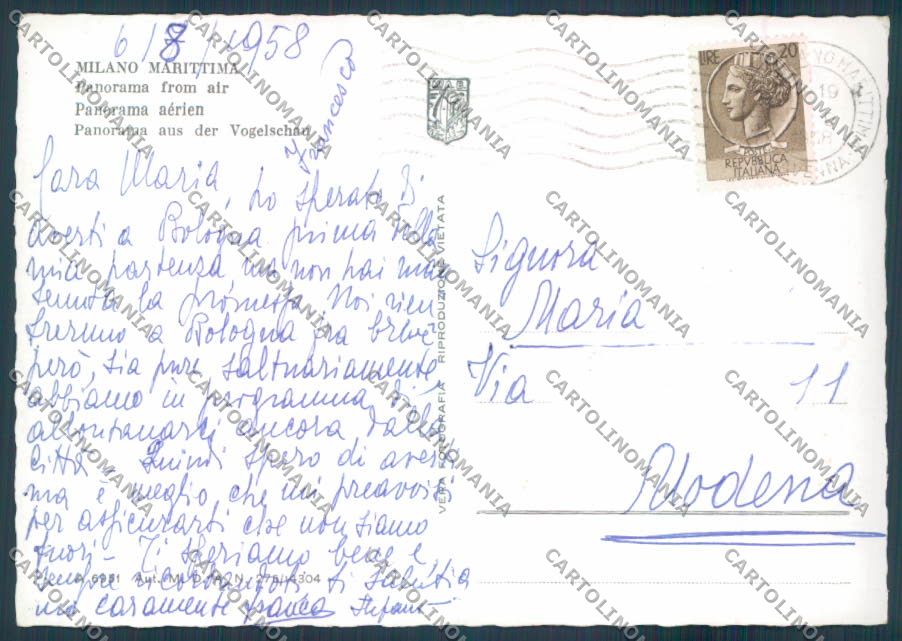 6/8/1958
MILANO MARITTIMA
Panorama from air
Panorama aérien
Panorama aus der Vogelschau
Francesco
Cara Maria, ho sperato di
averti a Bologna prima della
mia partenza ma non hai man
tenuto la promessa. Noi rien
treremo a Bologna fra breve
però, sia pure saltuariamente
abbiamo in programma di
allontanarci ancora dalla
città. Quindi spero di averti
ma è meglio che mi preavvisi
per assicurarti che non siamo
fuori - Ti speriamo bene e
sempre
ti saluta
caramente Franca Stefano
A 6951 Aut. M. D. A. N. 275/4304
VERA FOTOGRAFIA RIPRODUZIONE VIETATA
LIRE 20
REPVBBLICA
ITALIANA
Signora
Maria
Via 11
Modena
CARTOLINOMANIA